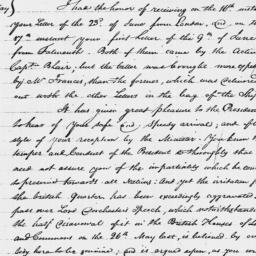 I had the honor of receiving on the 10th inst
your Letter of the 23d. of June from London, and, on the
17th instant your first letter of the 9th of June
from Falmouth. Both of them came by the Active
Capt. Blair, but the latter was brought more expedi
by Mr. Francis, than the former, which was delivered
out with the other Letters in the bag of the Ship
It has given great pleasure to the President
to hear of your safe and speedy arrival; and of the
style of your reception by the Minister. You know the
temper and Conduct of the President so thoroughly that
need not assure you of the impartiality which he con
to prevent towards all Nations: And yet the irritation from
the British Quarter has been exceedingly aggravated
pass over Lord Dorchester's Speech, which notwithstanding
the half disavowal of it in the British House of
and Commons on the 26th May last, is believed by every
body here to be genuine; and is argued upon, as you